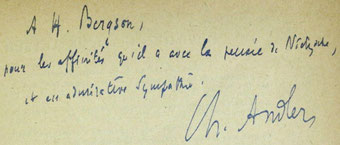 A H. Bergson,
pour les affinités qu'il a avec la pensée de Nietzsche,
et en admirative sympathie.
Ch. Andler